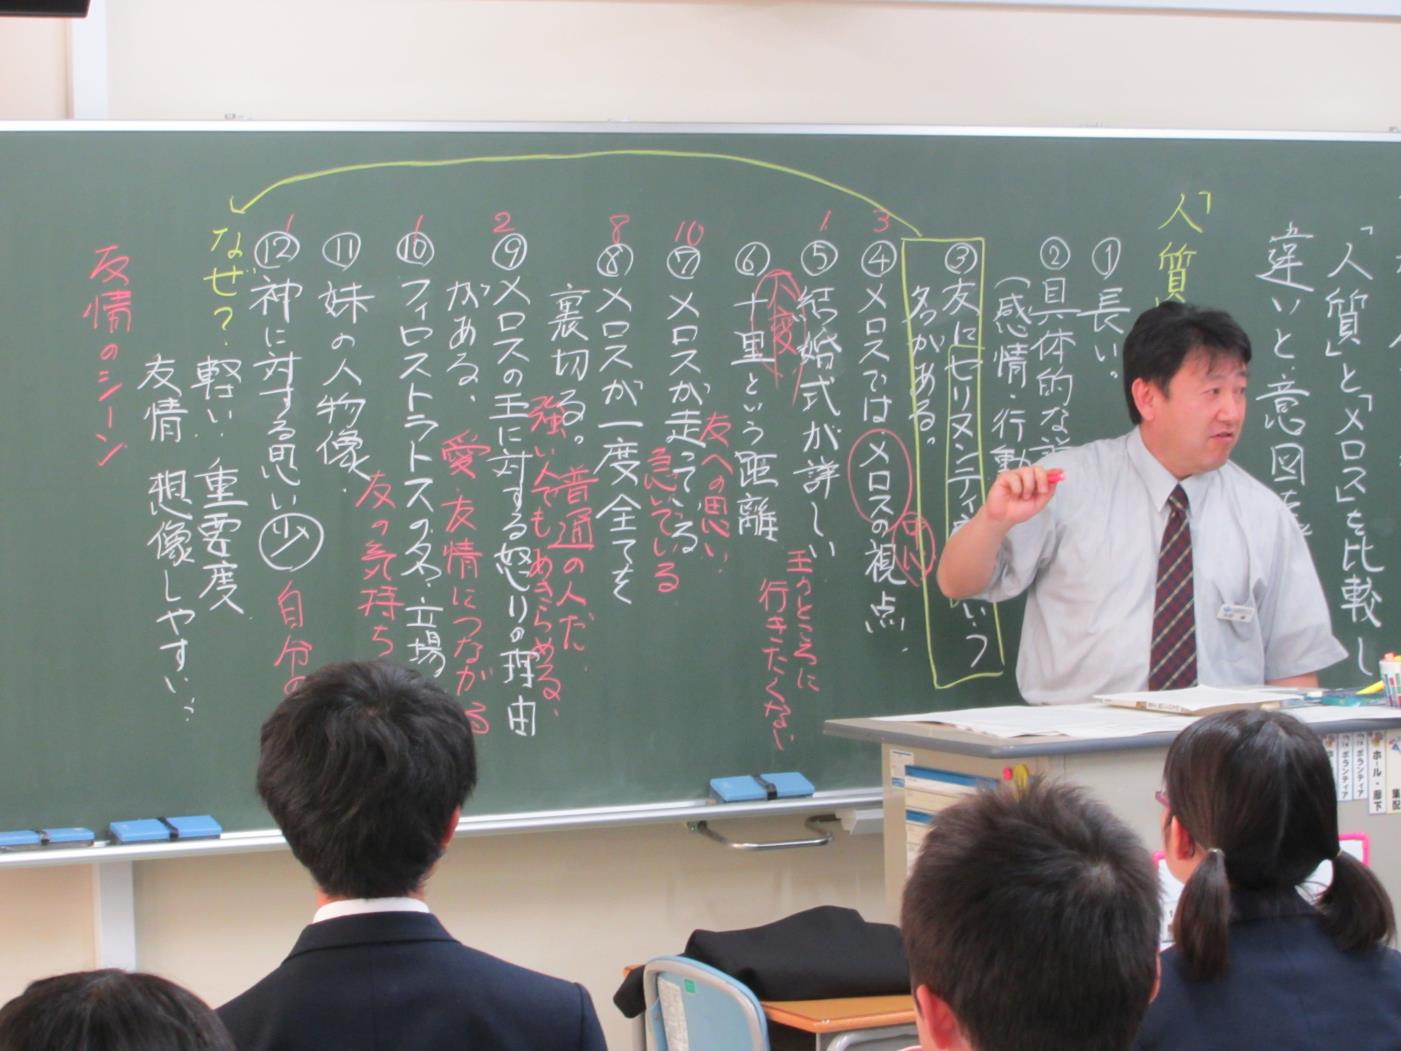 「人質」と「メロス」を比較し
違いと意図を
「人質
①長い。
②具体的な
(感情・行動
③友にセリヌンティウスという
名がある。
3
④メロスではメロスの視点
中心
1
⑤結婚式が詳しい
王のところに
行きたくない
⑥十里という距離
大変
10
⑦メロスが走っている
友への思い
急いでいる
8
⑧メロスが一度全てを
裏切る。
普通の人だ
強い人でもあきらめる
2
⑨メロスの王に対する怒りの理由
がある、
愛・友情につながる
1
⑩フィロストラトスの名・立場
友の気持ち
⑪妹の人物像
1
⑫神に対する思い少
自分の
なぜ?
軽い・重要度
友情 想像しやすい
友情のシーン
ボランティア
ボランティア
ホール・廊下
集配